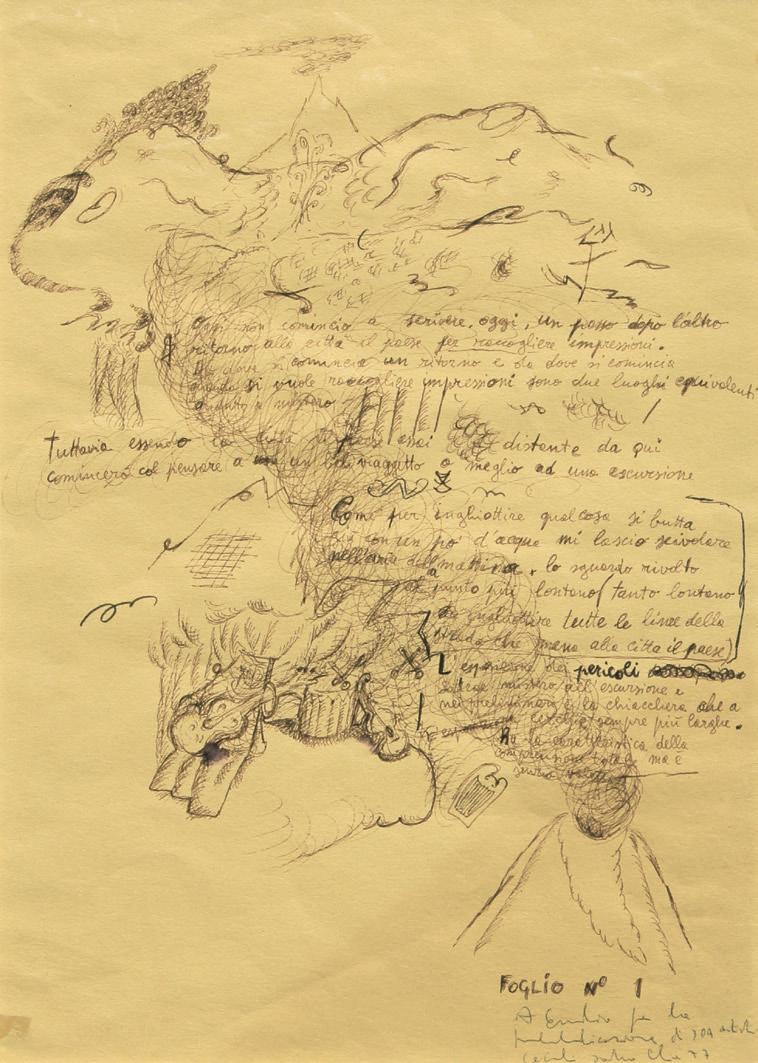 Oggi non comincio a scrivere, oggi, un passo dopo l'altro
ritorno alla città il paese per raccogliere impressioni.
Da dove si comincia un ritorno e da dove si comincia
quando si vuole raccogliere impressioni sono due luoghi equivalenti
quanto a mistero
Tuttavia essendo la città il paese assai distante da qui
comincerò col pensare a un bel viaggetto o meglio ad una escursione
Come per inghiottire qualcosa si butta
giù con un po' d'acqua mi lascio scivolare
nell'aria della mattina, lo sguardo rivolto
al punto più lontano (tanto lontano
da inghiottire tutte le linee della
strada che mena alla città il paese)
L'espansione dei pericoli
mistero all'escursione e
nei preliminari è la chiacchiera che a
cerchi sempre più larghe.
Ha la caratteristica della
comprensione totale ma è
senza
FOGLIO N° 1
A Emilio per la
pubblicazione di